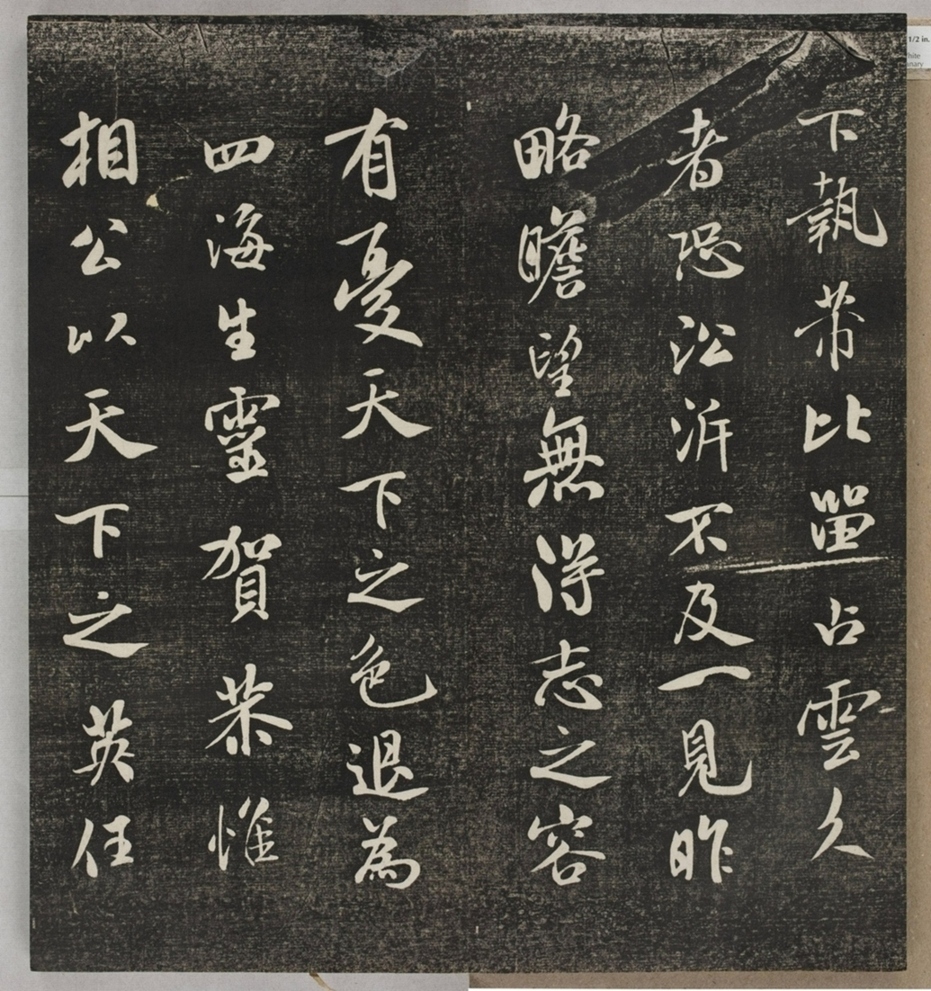 下執帚比留占雲久
者恐沿泝不及一見昨
略瞻望無得志之容
有憂天下之色退為
四海生靈賀恭惟
相公以天下之英任
1/2 in.